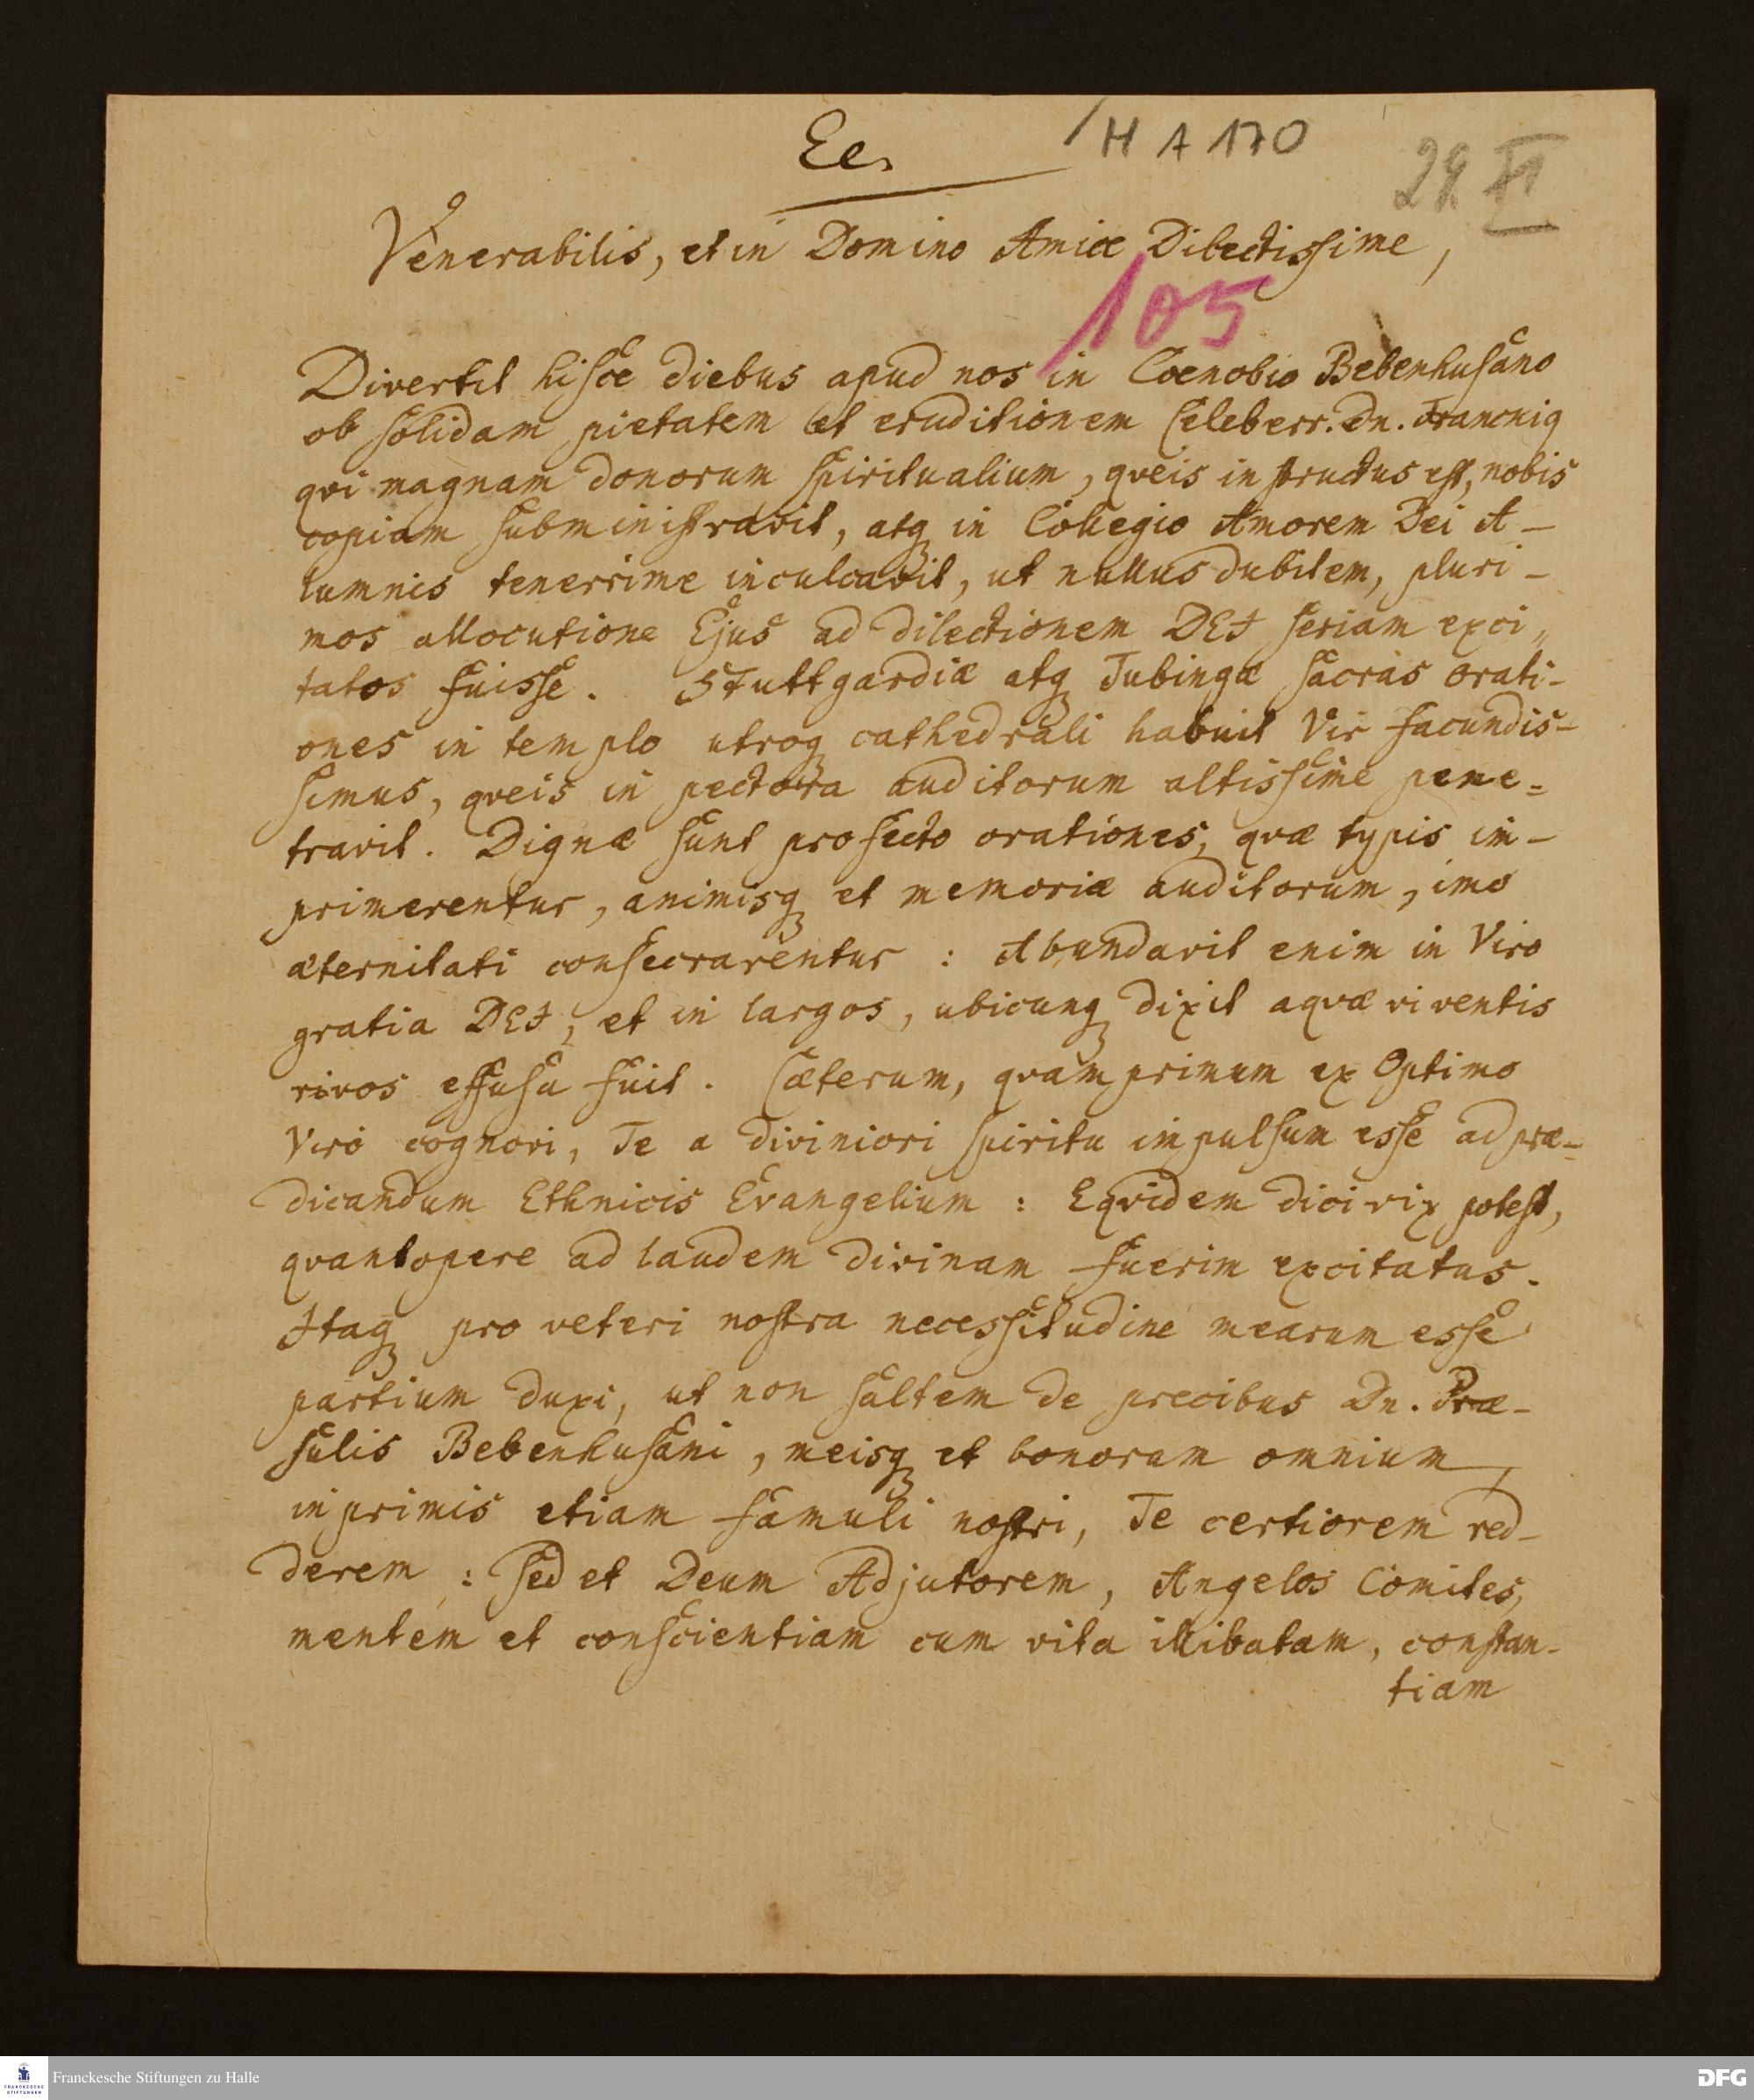 Ee.
/H A 170
24 VI
Venerabilis, et in Domino Amice Dilectissime,
105
Divertit hisce diebus apud nos in Coenobio Bebenhusano
ob solidam pietatem et eruditionem Celeberr. Dn. Franckig
qvi magnam donorum spiritualium, qveis instructus est, nobis
copiam subministravit, atq in Collegio Amorem Dei A-
lumnis tenerrime inculcavit, ut nullus dubitem, pluri-
mos allocutione Ejus ad dilectionem DEI seriam exci„
tatos fuisse. Stuttgardiæ atq Tubingæ sacras orati-
ones in templo utroq cathedrali habuit Vir facundis-
simus, qveis in pectora auditorum altissime pene-
travit. Dignæ sunt profecto orationes, qvæ typis im-
primerentur, animisq et memoriæ auditorum, imo
æternitati consecrarentur : Abundavit enim in Viro
gratia DEI, et in largos, ubicunq dixit aqvæ viventis
rivos effusa fuit. Cæterum, qvam primum ex Optimo
Viro cognovi, Te a diviniori spiritu impulsum esse ad præ-
dicandum Ethnicis Evangelium : Eqvidem dici vix potest,
qvantopere ad laudem divinam fuerim excitatus.
Itaq pro veteri nostra necessitudine mearum esse
partium duxi, ut non saltem de precibus Dn. Præ-
sulis Bebenhusani, meisq et bonorum omnium,
inprimis etiam famuli nostri, Te certiorem red-
derem : sed et Deum Adjutorem, Angelos Comites,
mentem et conscientiam cum vita illibatam, constan-
tiam
Franckesche Stiftungen zu Halle
FRANCKESCHE STIFTUNGEN
DFG